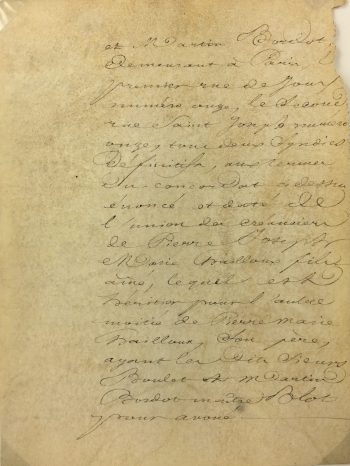 et Martin Bordot,
demeurant à Paris,
premier rue de Jour
numéro onze, le Second
rue Saint Joseph numéro
onze, tous deux Syndics
définitifs, aux termes
du concordat ci dessus
énoncé et daté de
l'union des créanciers
de Pierre Joseph
Marie Hailloux fils
aîné, lequel est
héritier pour l'autre
moitié de Pierre marie
Hailloux, Son père,
ayant les dits Sieurs
Boulet et Martin
Bordot maîtreOlot
pour avoué